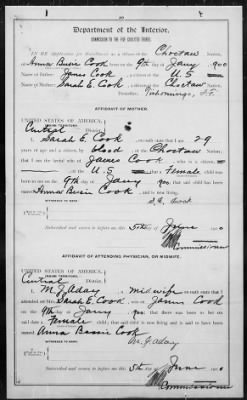 Department of the Interior,
COMMISSION TO THE FIVE CIVILIZED TRIBES.
IN RE Application for Enrollment, as a citizen of the Choctaw Nation,
of Anna Bessie Cook born on the 9th day of Jany 1900
Name of Father: James Cook a citizen of the U.S. Nation.
Name of Mother: Sarah E. Cook a citizen of the Choctaw Nation.
Tishomingo, I.T.
AFFIDAVIT OF MOTHER.
UNITED STATES OF AMERICA,
Central District.
I, Sarah E. Cook, on oath state that I am 29
years of age and a citizen by blood of the Choctaw Nation;
that I am the lawful wife of James Cook, who is a citizen,
of the U.S.; that a female child was
born to me on 9th day of Jany 1900, that said child has been
named Anna Bessie Cook, and is now living.
WITNESSES TO MARK:
Subscribed and sworn to before me this 5th day of June
Commissioner
AFFIDAVIT OF ATTENDING PHYSICIAN, OR MIDWIFE.
UNITED STATES OF AMERICA,
Central District.
I, M. J. Aday, a midwife, on oath state that I
attended on Mrs. Sarah E. Cook, wife of James Cook on the
9th day of Jany 1900; that there was born to her on said date a
Female child; that said child is now living and is said to have been
named Anna Bessie Cook
M. J. Aday
WITNESSES TO MARK:
Subscribed and sworn to before me this 5th day of June
Commissioner